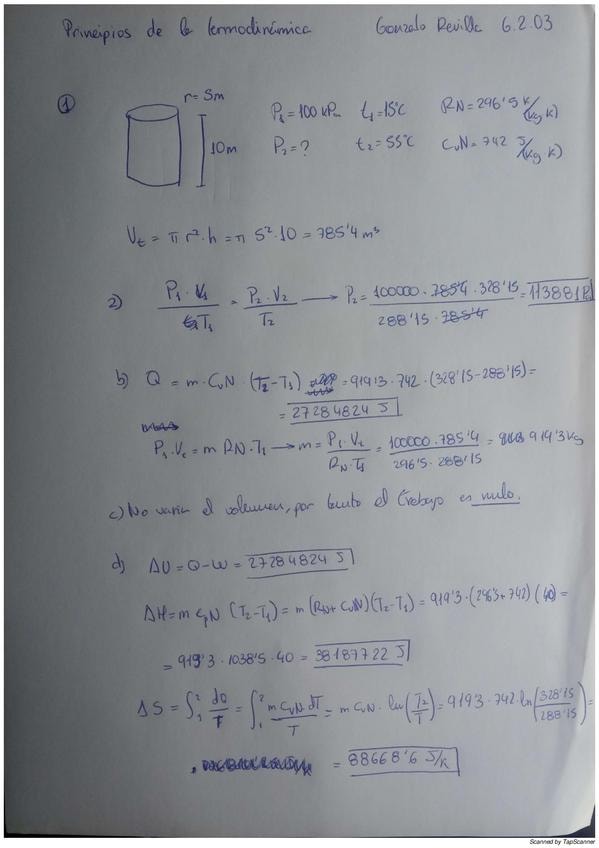 Principios de la termodinámica Gonzalo Revilla 6.2.03
① r= 5m
P₁=100 kPa t₁=15°C RN=296'5 J/(kg K)
10m P₂=? t₂=55°C CvN=742 J/(kg K)
Vt = π r²·h = π 5²·10 = 785'4 m³
a) P₁·V₁/T₁ = P₂·V₂/T₂ → P₂= 100000·785'4·328'15/288'15·785'4 = 113881 Pa
b) Q = m·CvN·(T₂-T₁) = 919'3·742·(328'15-288'15)=
= 27284824 J
P₁·Vt = m RN·T₁ → m= P₁·Vt/RN·T₁ = 100000·785'4/296'5·288'15 = 919'3 kg
c) No varía el volumen, por tanto el trabajo es nulo.
d) ΔU = Q-W = 27284824 J
ΔH= m cpN (T₂-T₁) = m (RN+CvN)(T₂-T₁) = 919'3·(296'5+742)(40)=
= 919'3·1038'5·40 = 38187722 J
ΔS = ∫₁² dQ/T = ∫₁² m CvN·dT/T = m CvN·ln(T₂/T₁) = 919'3·742·ln(328'15/288'15)=
= 88668'6 J/K
Scanned by TapScanner